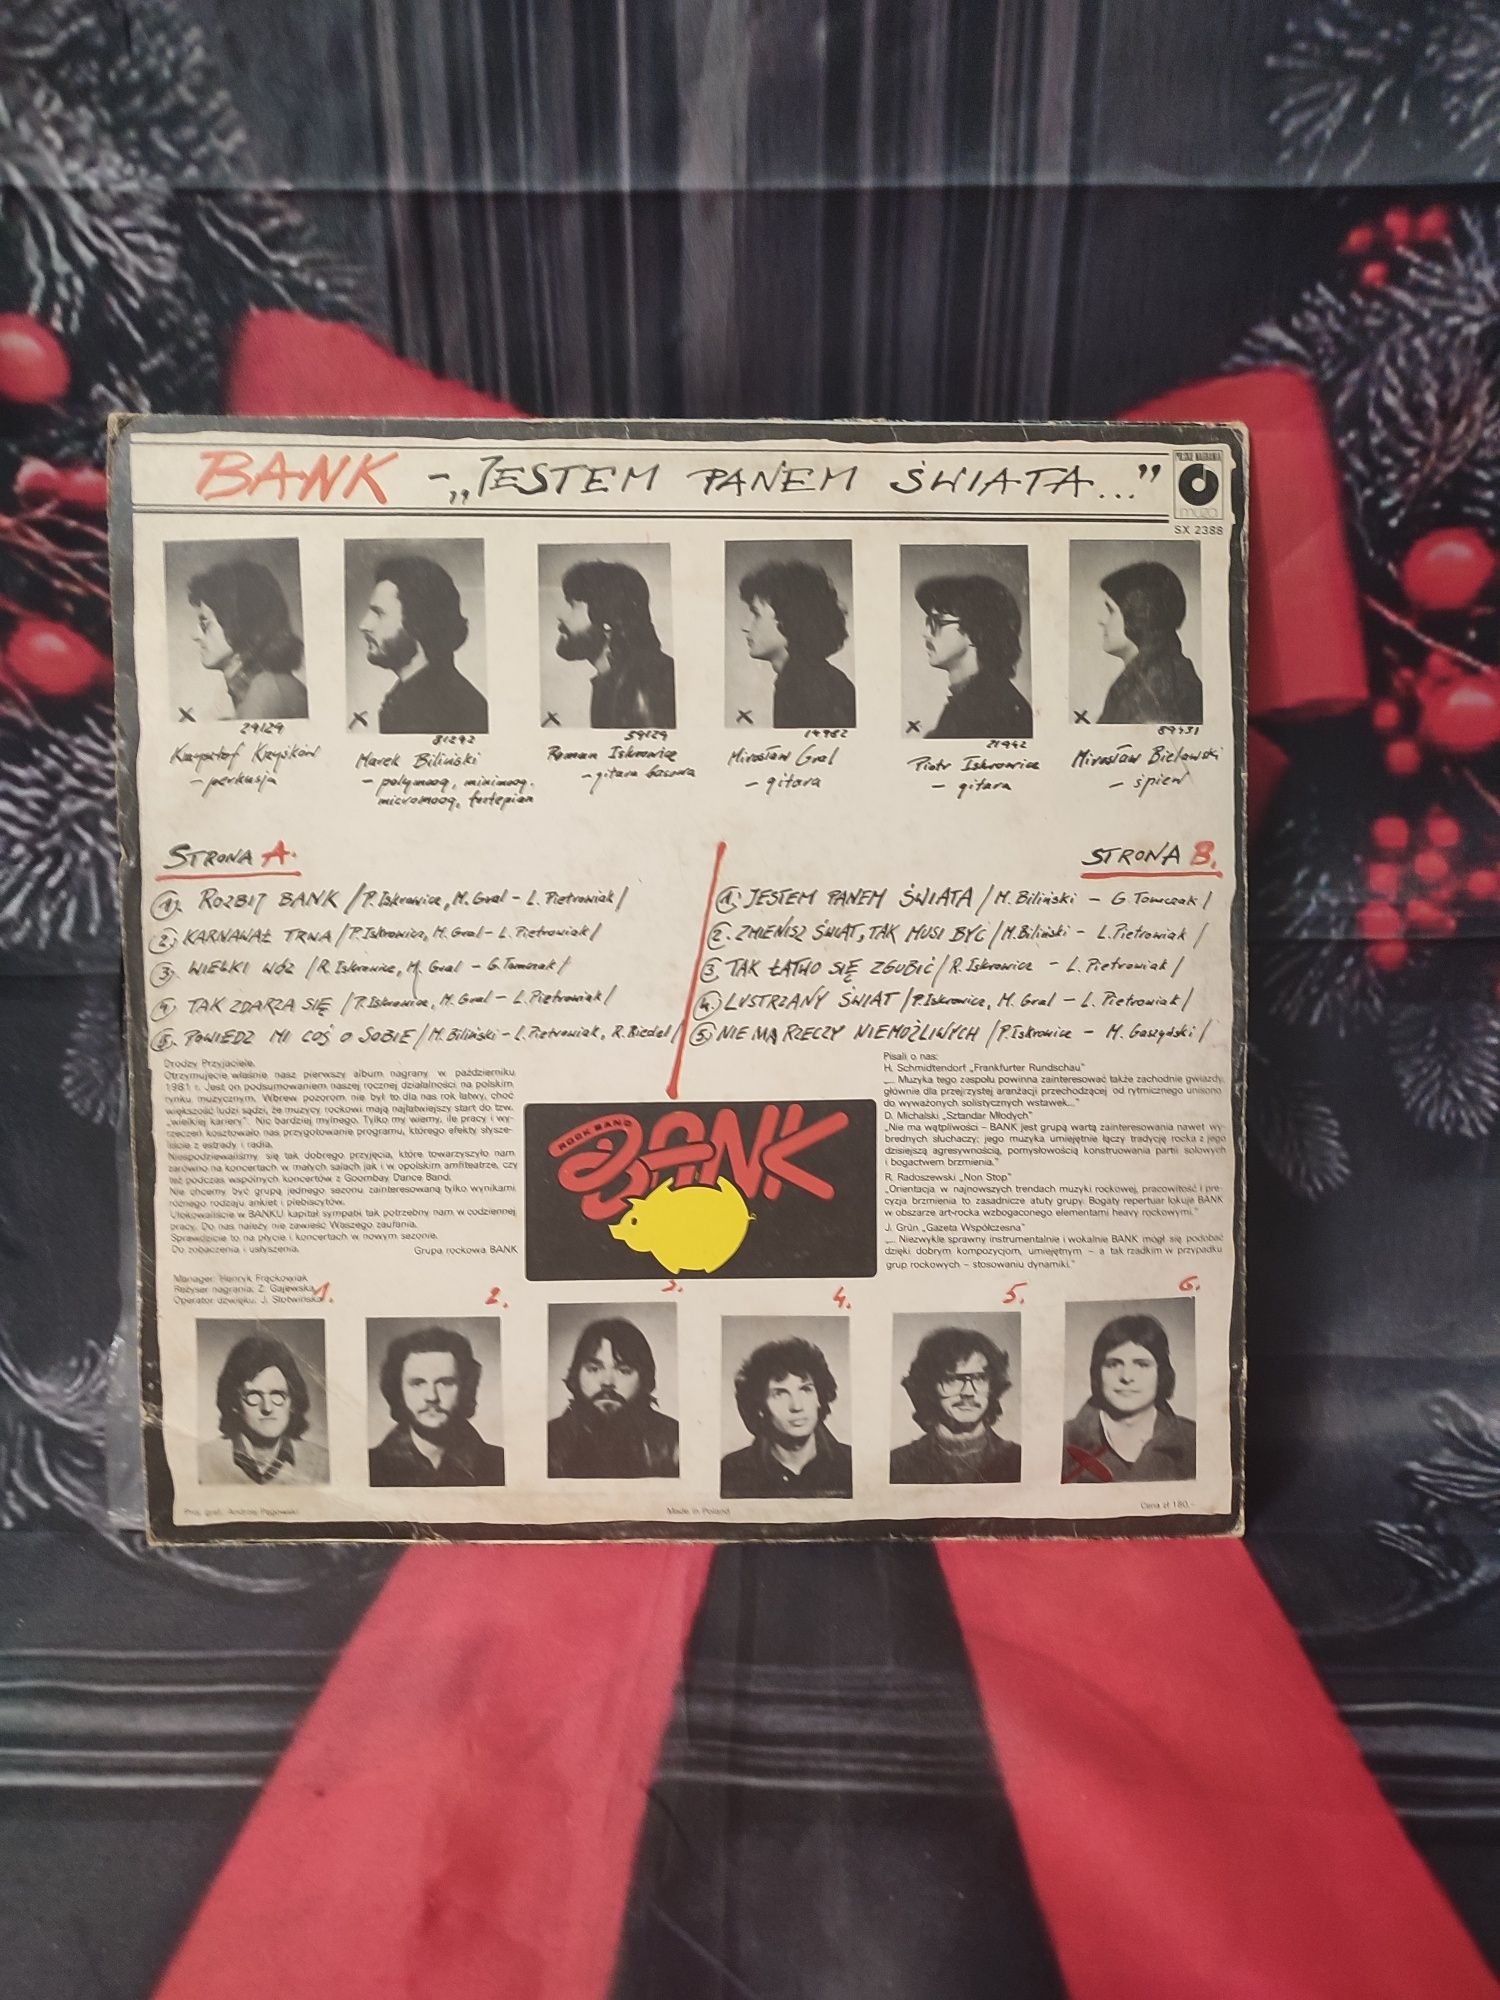 BANK - „JESTEM PANEM ŚWIATA..."
POLSKIE NAGRANIA
muza
SX 2388
29129
Krzysztof Krzyśków
- perkusja
81292
Marek Biliński
- polymoog, minimoog,
micromoog, fortepian
59129
Roman Iskrowicz
- gitara basowa
14982
Mirosław Gral
- gitara
21942
Piotr Iskrowicz
- gitara
Mirosław Bielawski
- śpiew
STRONA A.
1. ROZBIJ BANK /P. Iskrowicz, M. Gral - L. Pietrowiak/
2. KARNAWAŁ TRWA /P. Iskrowicz, M. Gral - L. Pietrowiak/
3. WIELKI WÓZ /R. Iskrowicz, M. Gral - G. Tomczak/
4. TAK ZDARZA SIĘ /P. Iskrowicz, M. Gral - L. Pietrowiak/
5. POWIEDZ MI COŚ O SOBIE /M. Biliński - L. Pietrowiak, R. Biedal/
STRONA B.
1. JESTEM PANEM ŚWIATA /M. Biliński - G. Tomczak/
2. ZMIENISZ ŚWIAT, TAK MUSI BYĆ /M. Biliński - L. Pietrowiak/
3. TAK ŁATWO SIĘ ZGUBIĆ /R. Iskrowicz - L. Pietrowiak/
4. LUSTRZANY ŚWIAT /P. Iskrowicz, M. Gral - L. Pietrowiak/
5. NIE MA RZECZY NIEMOŻLIWYCH /P. Iskrowicz - M. Gaszyński/
Drodzy Przyjaciele,
Otrzymujecie właśnie nasz pierwszy album nagrany w październiku
1981 r. Jest on podsumowaniem naszej rocznej działalności na polskim
rynku muzycznym. Wbrew pozorom nie był to dla nas rok łatwy, choć
większość ludzi sądzi, że muzycy rockowi mają najłatwiejszy start do tzw.
„wielkiej kariery". Nic bardziej mylnego. Tylko my wiemy, ile pracy i wy-
rzeczeń kosztowało nas przygotowanie programu, którego efekty słysze-
liście z estrady i radia.
Niespodziewaliśmy się tak dobrego przyjęcia, które towarzyszyło nam
zarówno na koncertach w małych salach jak i w opolskim amfiteatrze, czy
też podczas wspólnych koncertów z Goombay Dance Band.
Nie chcemy być grupą jednego sezonu zainteresowaną tylko wynikami
różnego rodzaju ankiet i plebiscytów.
Ulokowaliście w BANKU kapitał sympatii tak potrzebny nam w codziennej
pracy. Do nas należy nie zawieść Waszego zaufania.
Sprawdzicie to na płycie i koncertach w nowym sezonie.
Do zobaczenia i usłyszenia. Grupa rockowa BANK
Manager: Henryk Frąckowiak
Reżyser nagrania: Z. Gajewska
Operator dźwięku: J. Słotwińska
ROCK BAND
BANK
Pisali o nas:
H. Schmidtendorf „Frankfurter Rundschau"
„... Muzyka tego zespołu powinna zainteresować także zachodnie gwiazdy,
głównie dla przejrzystej aranżacji przechodzącej od rytmicznego unisono
do wyważonych solistycznych wstawek..."
D. Michalski „Sztandar Młodych"
„Nie ma wątpliwości - BANK jest grupą wartą zainteresowania nawet wy-
brednych słuchaczy; jego muzyka umiejętnie łączy tradycję rocka z jego
dzisiejszą agresywnością, pomysłowością konstruowania partii solowych
i bogactwem brzmienia."
R. Radoszewski „Non Stop"
„Orientacja w najnowszych trendach muzyki rockowej, pracowitość i pre-
cyzja brzmienia to zasadnicze atuty grupy. Bogaty repertuar lokuje BANK
w obszarze art-rocka wzbogaconego elementami heavy rockowymi."
J. Grün „Gazeta Współczesna"
„... Niezwykle sprawny instrumentalnie i wokalnie BANK mógł się podobać
dzięki dobrym kompozycjom, umiejętnym - a tak rzadkim w przypadku
grup rockowych - stosowaniu dynamiki."
1.
2.
3.
4.
5.
6.
Proj. graf.: Andrzej Pągowski
Made in Poland
Cena zł 180,-